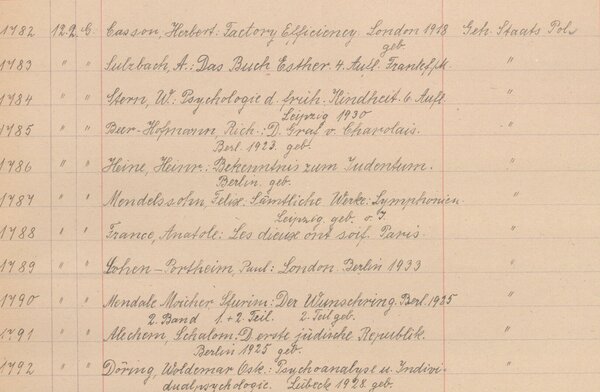 1782 12.2. G. Casson, Herbert: Factory Efficiency. London 1918 Geh. Staats Pol.
geb.
1783 " " Sulzbach, A.: Das Buch Esther. 4. Aufl. Frankf./M. "
1784 " " Stern, W.: Psychologie d. früh. Kindheit. 6. Aufl. "
Leipzig 1930
1785 " " Beer-Hofmann, Rich.: D. Graf v. Charolais. "
Berl. 1923. geb.
1786 " " Heine, Heinr.: Bekenntnis zum Judentum. "
Berlin. geb.
1787 " " Mendelssohn, Felix: Sämtliche Werke: Symphonien "
Leipzig. geb. o. J.
1788 " " France, Anatole: Les dieux ont soif. Paris "
1789 " " Cohen-Portheim, Paul: London. Berlin 1933 "
1790 " " Mendale Moicher Sfurim: Der Wunschring. Berl. 1925 "
2. Band 1. + 2. Teil. 2. Teil geb.
1791 " " Alechem, Schalom: D. erste jüdische Republik. "
Berlin 1925 geb.
1792 " " Döring, Woldemar Osk.: Psychoanalyse u. Indivi- "
dualpsychologie. Lübeck 1928 geb.